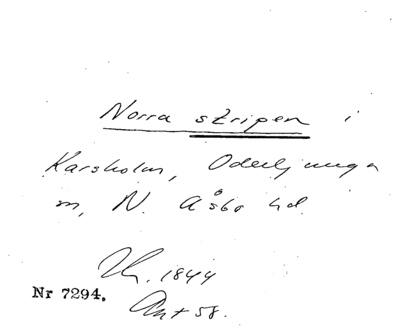 Norra stripen i
Karsholm, Oderljunga
m, N. Åsbo hd.
1844
Nr 7294.
Ant 58.